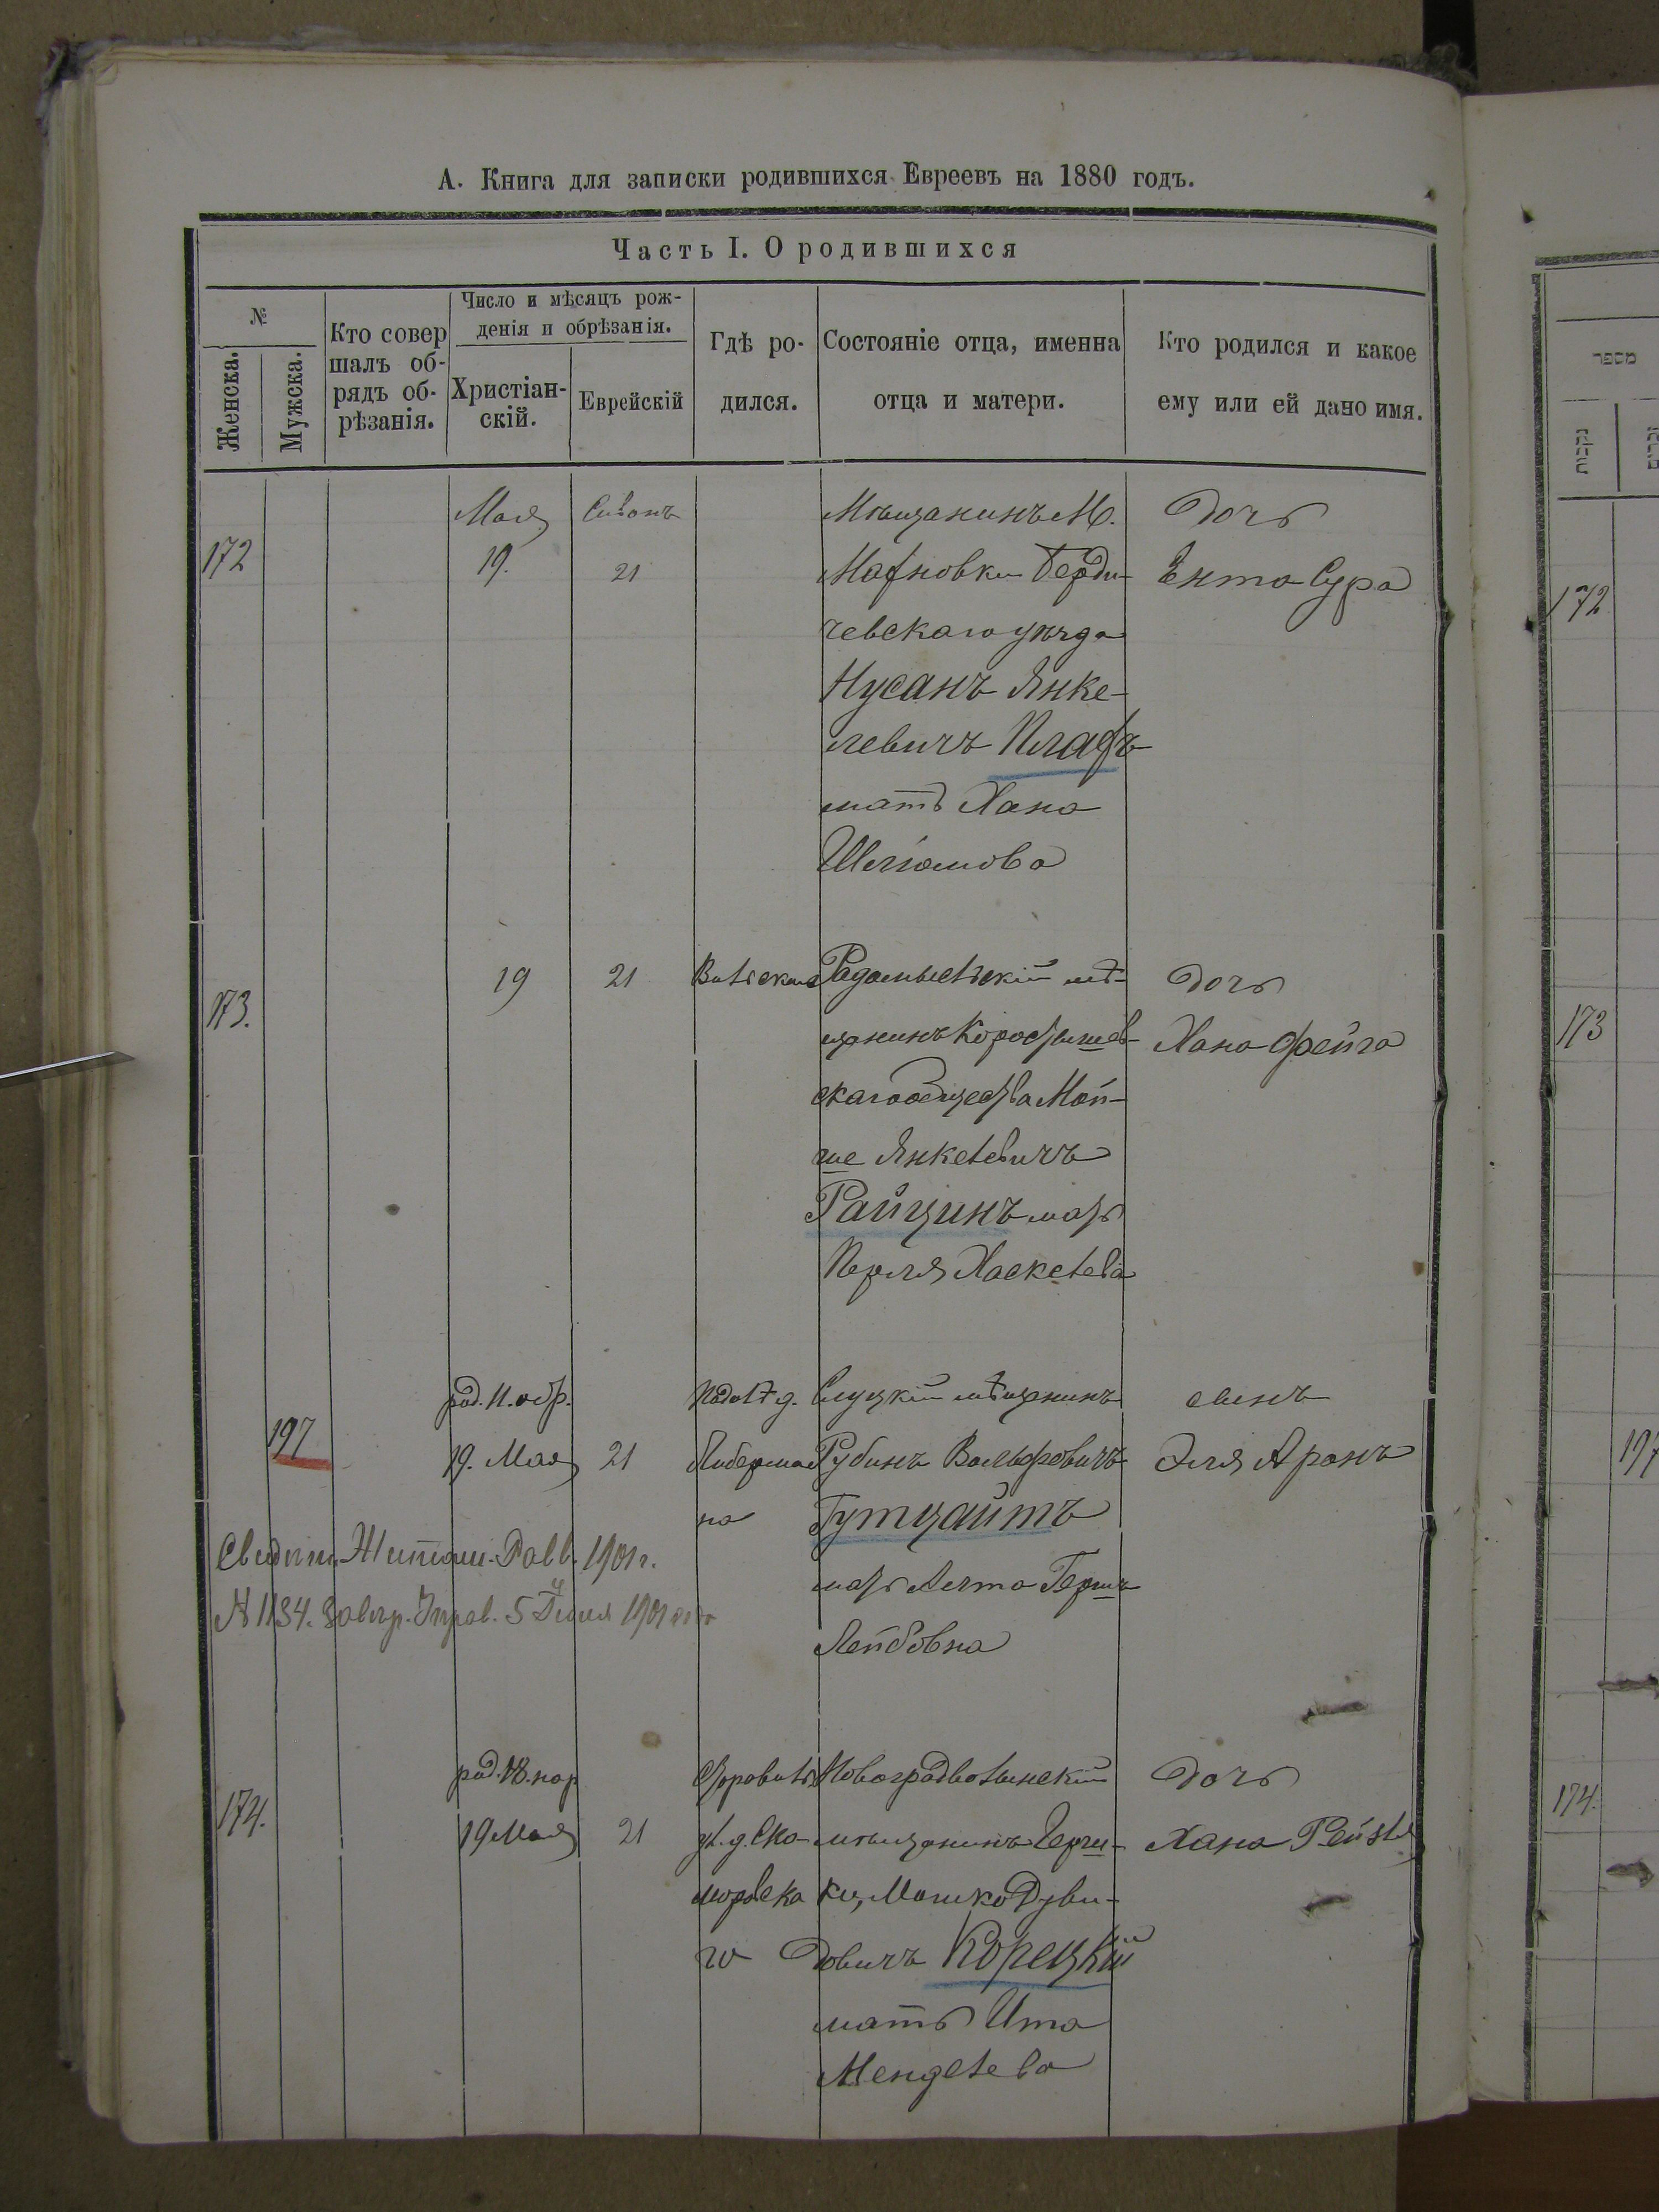 А. Книга для записки родившихся Евреевъ на 1880 годъ.
Часть I. О родившихся
№
Женска.
Мужска.
Кто совер
шалъ об-
рядъ об-
рѣзанія.
Число и мѣсяцъ рож-
денія и обрѣзанія.
Христіан-
скій.
Еврейскій
Гдѣ ро-
дился.
Состояніе отца, именна
отца и матери.
Кто родился и какое
ему или ей дано имя.
172
Мая
19.
Сивонъ
21
Мѣщанинъ М.
Махновки Берди-
чевскаго уѣзда
Нусанъ Янке-
левичъ
мать Хана
Шліомова
Дочь
Ента Сура
173.
19
21
Радомысльскій мѣ-
щанинъ Коростышев-
скаго общества Мой-
ше Янкелевичъ
Райцинъ мать
Перля Хаскелева
Дочь
Хана Фейга
197
род. 11. обр.
19. Мая
21
Подолъ д.
Либерма
на
Слуцкій мѣщанинъ
Рубинъ Вольфовичъ
Гутцайтъ
мать Герш
Лейбовна
сынъ
Эля Аронъ
Свидѣт. Житом. Равв. 1901 г.
174.
род. 18. нар
19 Мая
21
д. Ско-
морвска
го
Новоградволынскій
мѣщанинъ
Мошко Дуви-
довичъ Корецкій
мать Ита
Менделева
Дочь
Хана Рейзля
מספר
נקבות
172
173
197
174.